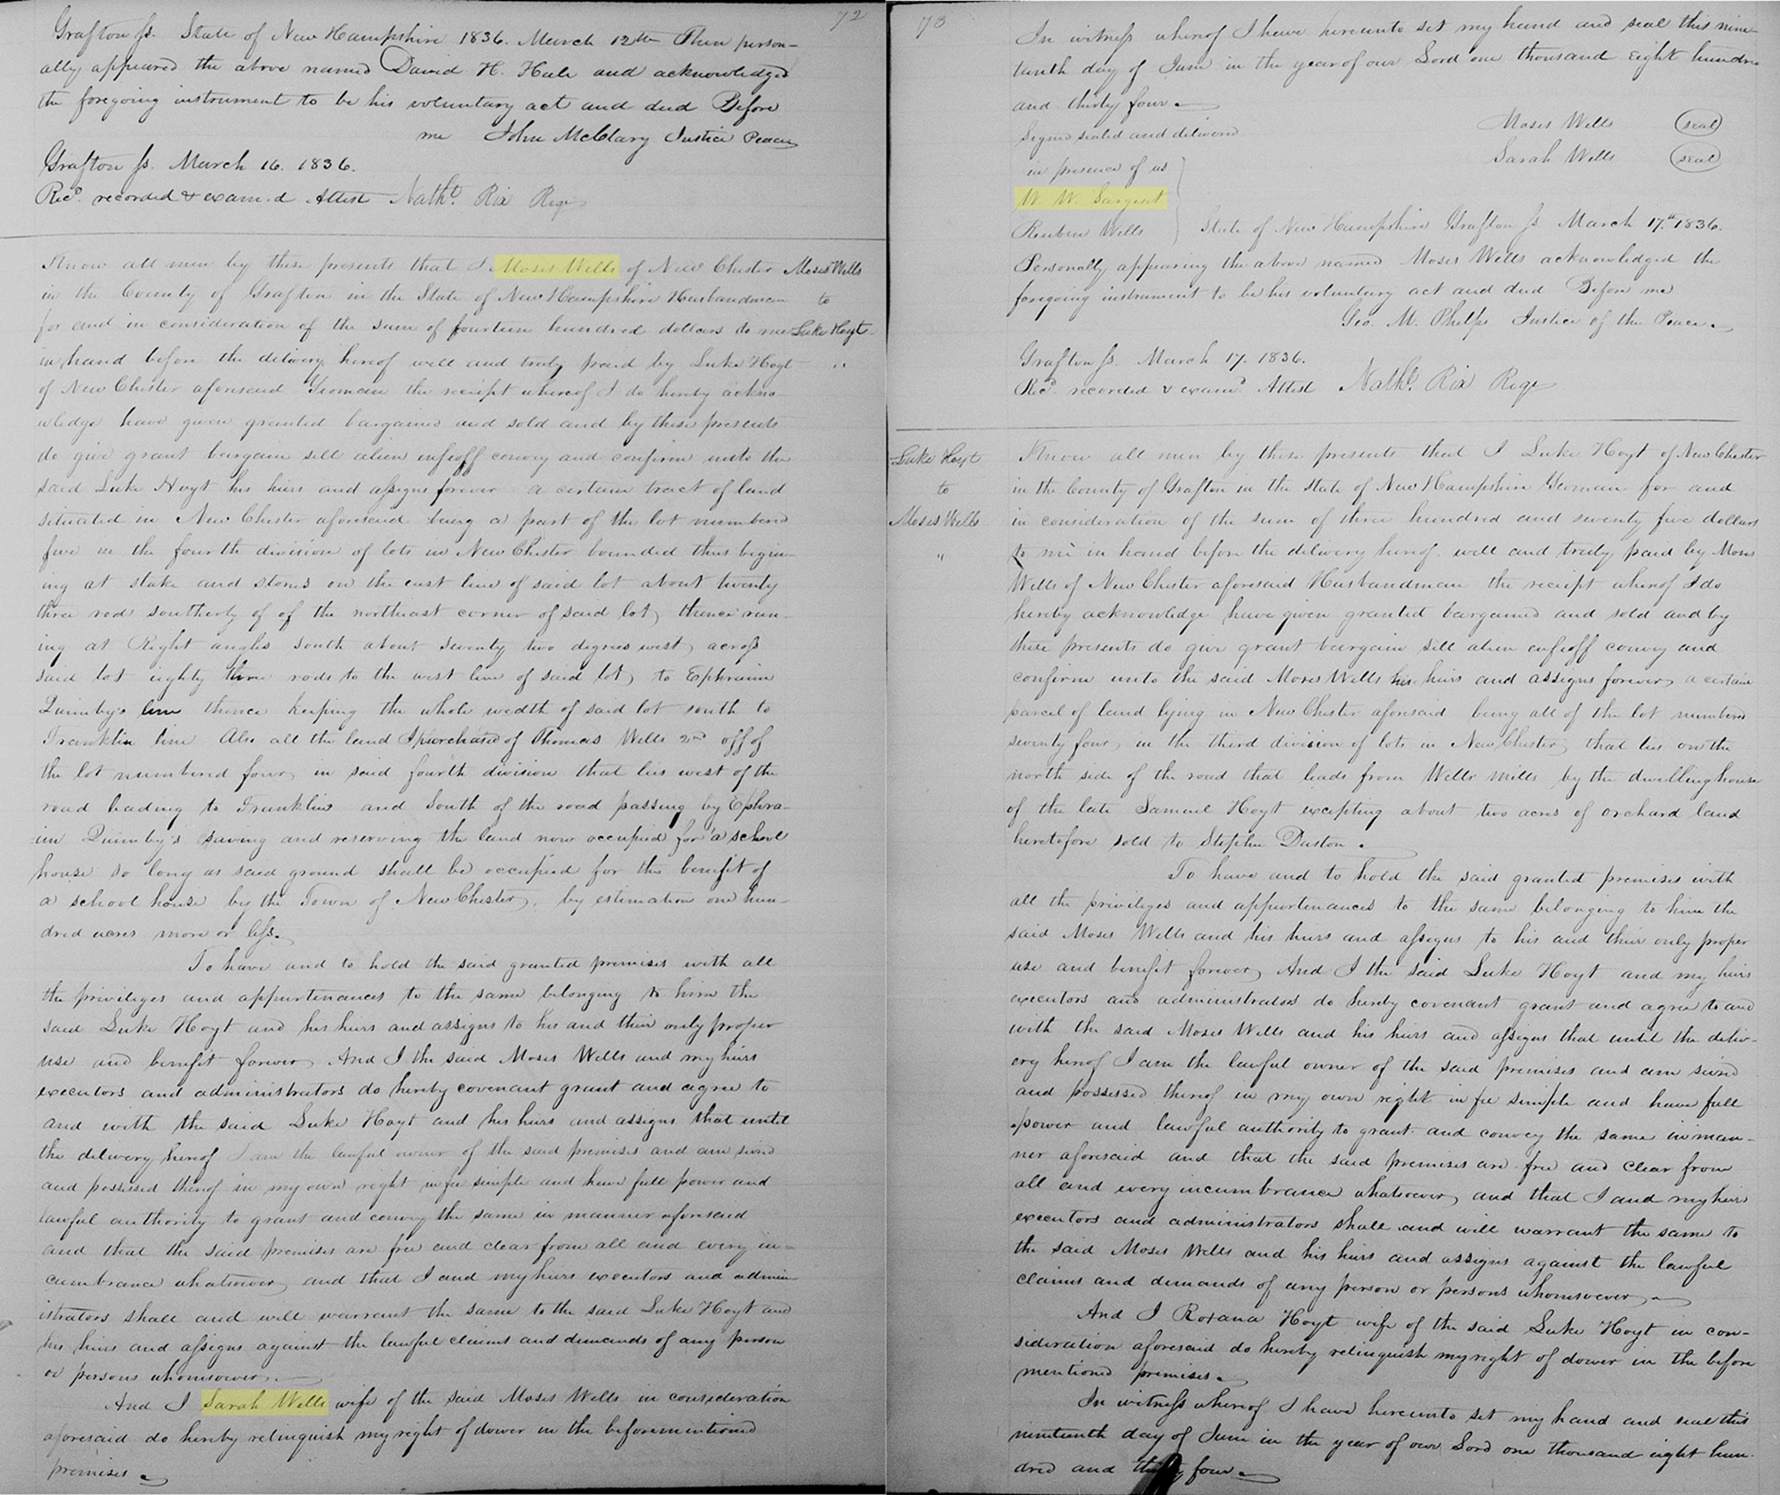 72
Grafton ss. State of New Hampshire 1836. March 12th Then person-
ally appeared the above named David H. Hale and acknowledged
the foregoing instrument to be his voluntary act and deed Before
me John McClary Justice Peace
Grafton ss. March 16. 1836.
Recd. recorded & exam.d Attest Nathl. Rix Regr
Know all men by these presents that I Moses Wells of New Chester
in the County of Grafton in the State of New Hampshire Husbandman
for and in consideration of the sum of fourteen hundred dollars to me
in hand before the delivery hereof well and truly paid by Luke Hoyt
of New Chester aforesaid Yeoman the receipt whereof I do hereby ackno-
wledge have given granted bargained and sold and by these presents
do give grant bargain sell alien enfeoff convey and confirm unto the
said Luke Hoyt his heirs and assigns forever a certain tract of land
situated in New Chester aforesaid being a part of the lot numbered
five in the fourth division of lots in New Chester bounded thus begin-
ing at stake and stones on the east line of said lot about twenty
three rods southerly of of the northeast corner of said lot, thence run-
ing at Right angles south about seventy two degrees west, across
said lot eighty three rods to the west line of said lot, to Ephraim
Quimby's line thence keeping the whole width of said lot south to
Franklin line Also all the land I purchased of Thomas Wells 2nd off of
the lot numbered four, in said fourth division that lies west of the
road leading to Franklin and South of the road passing by Ephra-
im Quimby's saving and reserving the land now occupied for a school
house so long as said ground shall be occupied for the benefit of
a school house by the Town of New Chester, by estimation one hun-
dred acres more or less.
To have and to hold the said granted premises with all
the privileges and appurtenances to the same belonging to him the
said Luke Hoyt and his heirs and assigns to his and their only proper
use and benefit forever, And I the said Moses Wells and my heirs
executors and administrators do hereby covenant grant and agree to
and with the said Luke Hoyt and his heirs and assigns that until
the delivery hereof I am the lawful owner of the said premises and am seized
and possessed thereof in my own right in fee simple and have full power and
lawful authority to grant and convey the same in manner aforesaid
and that the said premises are free and clear from all and every in-
cumbrance whatsoever, and that I and my heirs executors and admin-
istrators shall and will warrant the same to the said Luke Hoyt and
his heirs and assigns against the lawful claims and demands of any person
or persons whomsoever.
And I Sarah Wells wife of the said Moses Wells in consideration
aforesaid do hereby relinquish my right of dower in the beforementioned
premises
Moses Wells
to
Luke Hoyt
"
73
In witness whereof I have hereunto set my hand and seal this nine-
tenth day of June in the year of our Lord one thousand eight hundre
and thirty four.
Signed sealed and delivered
in presence of us
W. W. Sargent
Reuben Wells
Moses Wells (seal)
Sarah Wells (seal)
State of New Hampshire Grafton ss March 17th 1836.
Personally appearing the above named Moses Wells acknowledged the
foregoing instrument to be his voluntary act and deed Before me
Geo. M. Phelps Justice of the Peace.
Grafton ss. March 17. 1836.
Recd. recorded & examd. Attest Nathl. Rix Regr
Luke Hoyt
to
Moses Wells
"
Know all men by these presents that I Luke Hoyt of New Chester
in the County of Grafton in the State of New Hampshire Yeoman for and
in consideration of the sum of three hundred and seventy five dollars
to me in hand before the delivery hereof well and truly paid by Moses
Wells of New Chester aforesaid Husbandman the receipt whereof I do
hereby acknowledge have given granted bargained and sold and by
these presents do give grant bargain sell alien enfeoff convey and
confirm unto the said Moses Wells his heirs and assigns forever, a certain
parcel of land lying in New Chester aforesaid being all of the lot numbered
seventy four, in the third division of lots in New Chester, that lies on the
north side of the road that leads from Wells mills by the dwelling house
of the late Samuel Hoyt excepting about two acres of orchard land
heretofore sold to Stephen Duston.
To have and to hold the said granted premises with
all the privileges and appurtenances to the same belonging to him the
said Moses Wells and his heirs and assigns to his and their only proper
use and benefit forever, And I the said Luke Hoyt and my heirs
executors and administrators do hereby covenant grant and agree to and
with the said Moses Wells and his heirs and assigns that until the deliv-
ery hereof I am the lawful owner of the said premises and am seized
and possessed thereof in my own right in fee simple and have full
power and lawful authority to grant and convey the same in man-
ner aforesaid and that the said premises are free and clear from
all and every incumbrance whatsoever, and that I and my heirs
executors and administrators shall and will warrant the same to
the said Moses Wells and his heirs and assigns against the lawful
claims and demands of any person or persons whomsoever,
And I Roxana Hoyt wife of the said Luke Hoyt in con-
sideration aforesaid do hereby relinquish my right of dower in the before
mentioned premises.
In witness whereof I have hereunto set my hand and seal this
nineteenth day of June in the year of our Lord one thousand eight hun-
dred and thirty four.